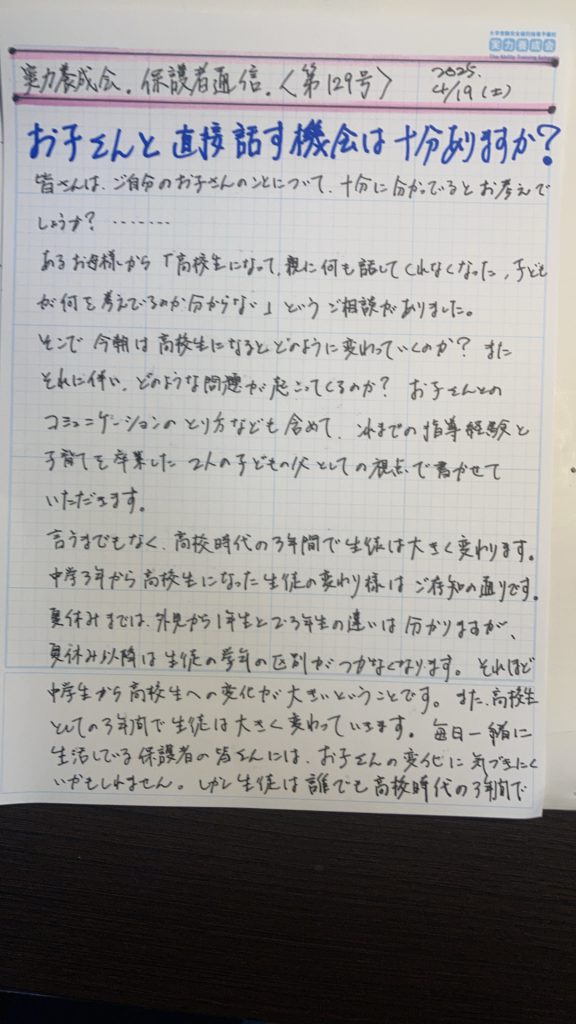 実力養成会
The Ability Training School
実力養成会.保護者通信.〈第129号〉 2025. 4/19(土)
お子さんと直接話す機会は十分ありますか?
皆さんは、ご自分のお子さんのことについて、十分に分かっているとお考えで
しょうか? ‥‥‥‥
あるお母様から「高校生になって、親に何も話してくれなくなった,子ども
が何を考えているのか分からない」というご相談がありました。
そこで今朝は高校生になるとどのように変わっていくのか? また
それに伴い、どのような問題が起こってくるのか? お子さんとの
コミュニケーションのとり方なども含めて、これまでの指導経験と
子育てを卒業した2人の子どもの父としての視点で書かせて
いただきます。
言うまでもなく、高校時代の3年間で生徒は大きく変わります。
中学3年から高校生になった生徒の変わり様はご存知の通りです。
夏休みまでは、外見から1年生と2・3年生の違いは分かりますが、
夏休み以降は生徒の学年の区別がつかなくなります。それほど
中学生から高校生への変化が大きいということです。また、高校生
としての3年間で生徒は大きく変わっていきます。毎日一緒に
生活している保護者の皆さんには、お子さんの変化に気づきにく
いかもしれません。しかし生徒は誰でも高校時代の3年間で